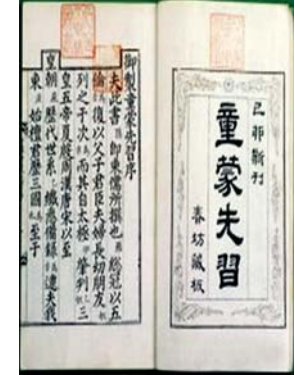 己卯新刊
童蒙先習
春坊藏板
御製童蒙先習序
夫此書 御東儒所撰也 總冠以五
倫 復以父子君臣夫婦長幼朋友
列之于次 而其自太極 肇判 三
皇五帝夏殷周漢唐宋以至
皇朝 歷代世系 纖悉備錄 逮夫我
東 始檀君歷三國 至于